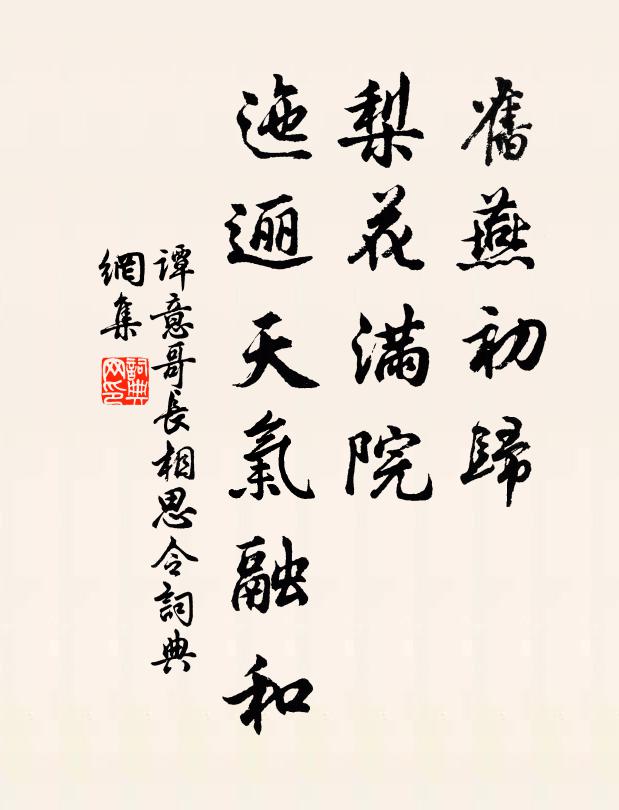 舊燕初歸
梨花滿院
迤逦天氣融和
譚意哥長相思令詞典
網集
詞典
网印